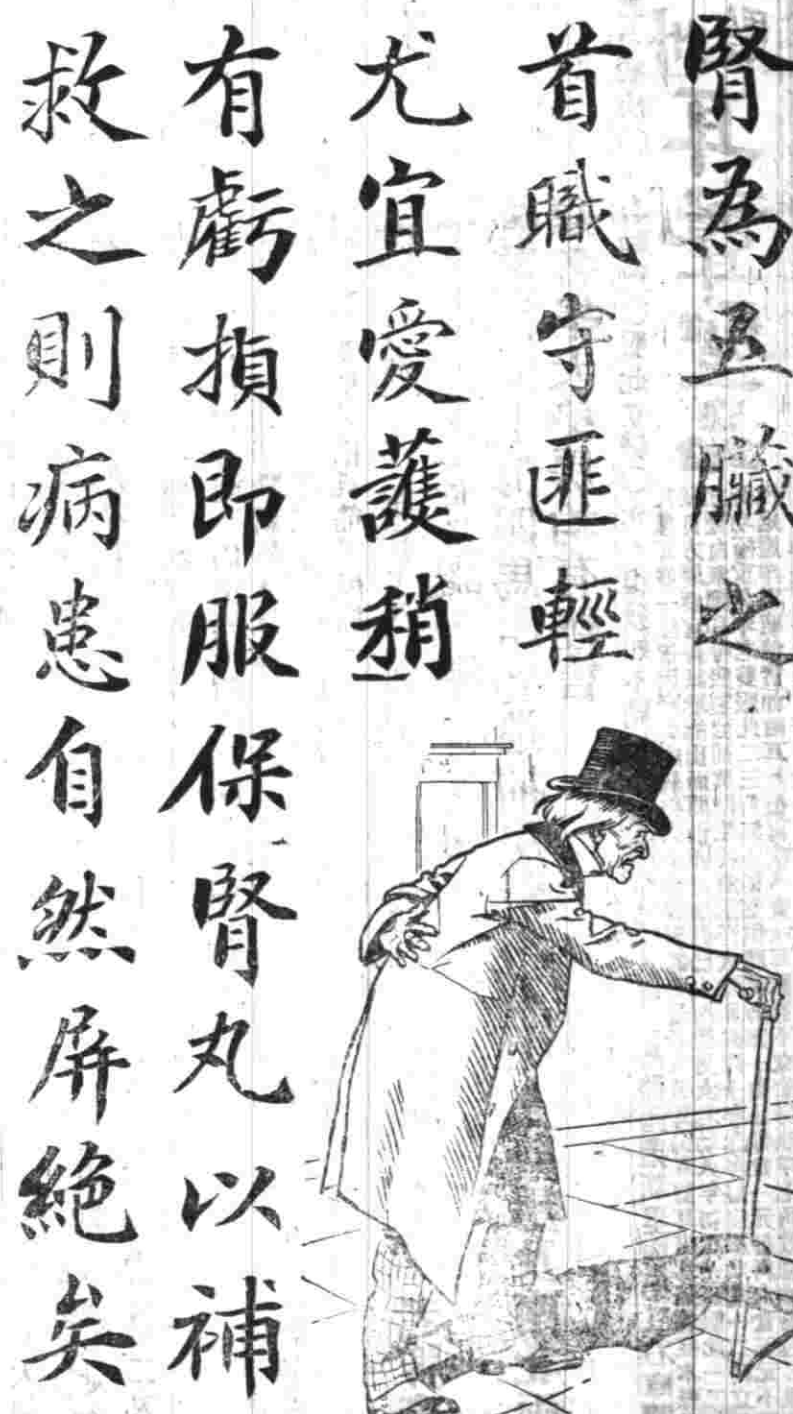 腎為五臟之
首職守匪輕
尤宜愛護稍
有虧損即服保腎丸以補
救之則病患自然屏絕矣